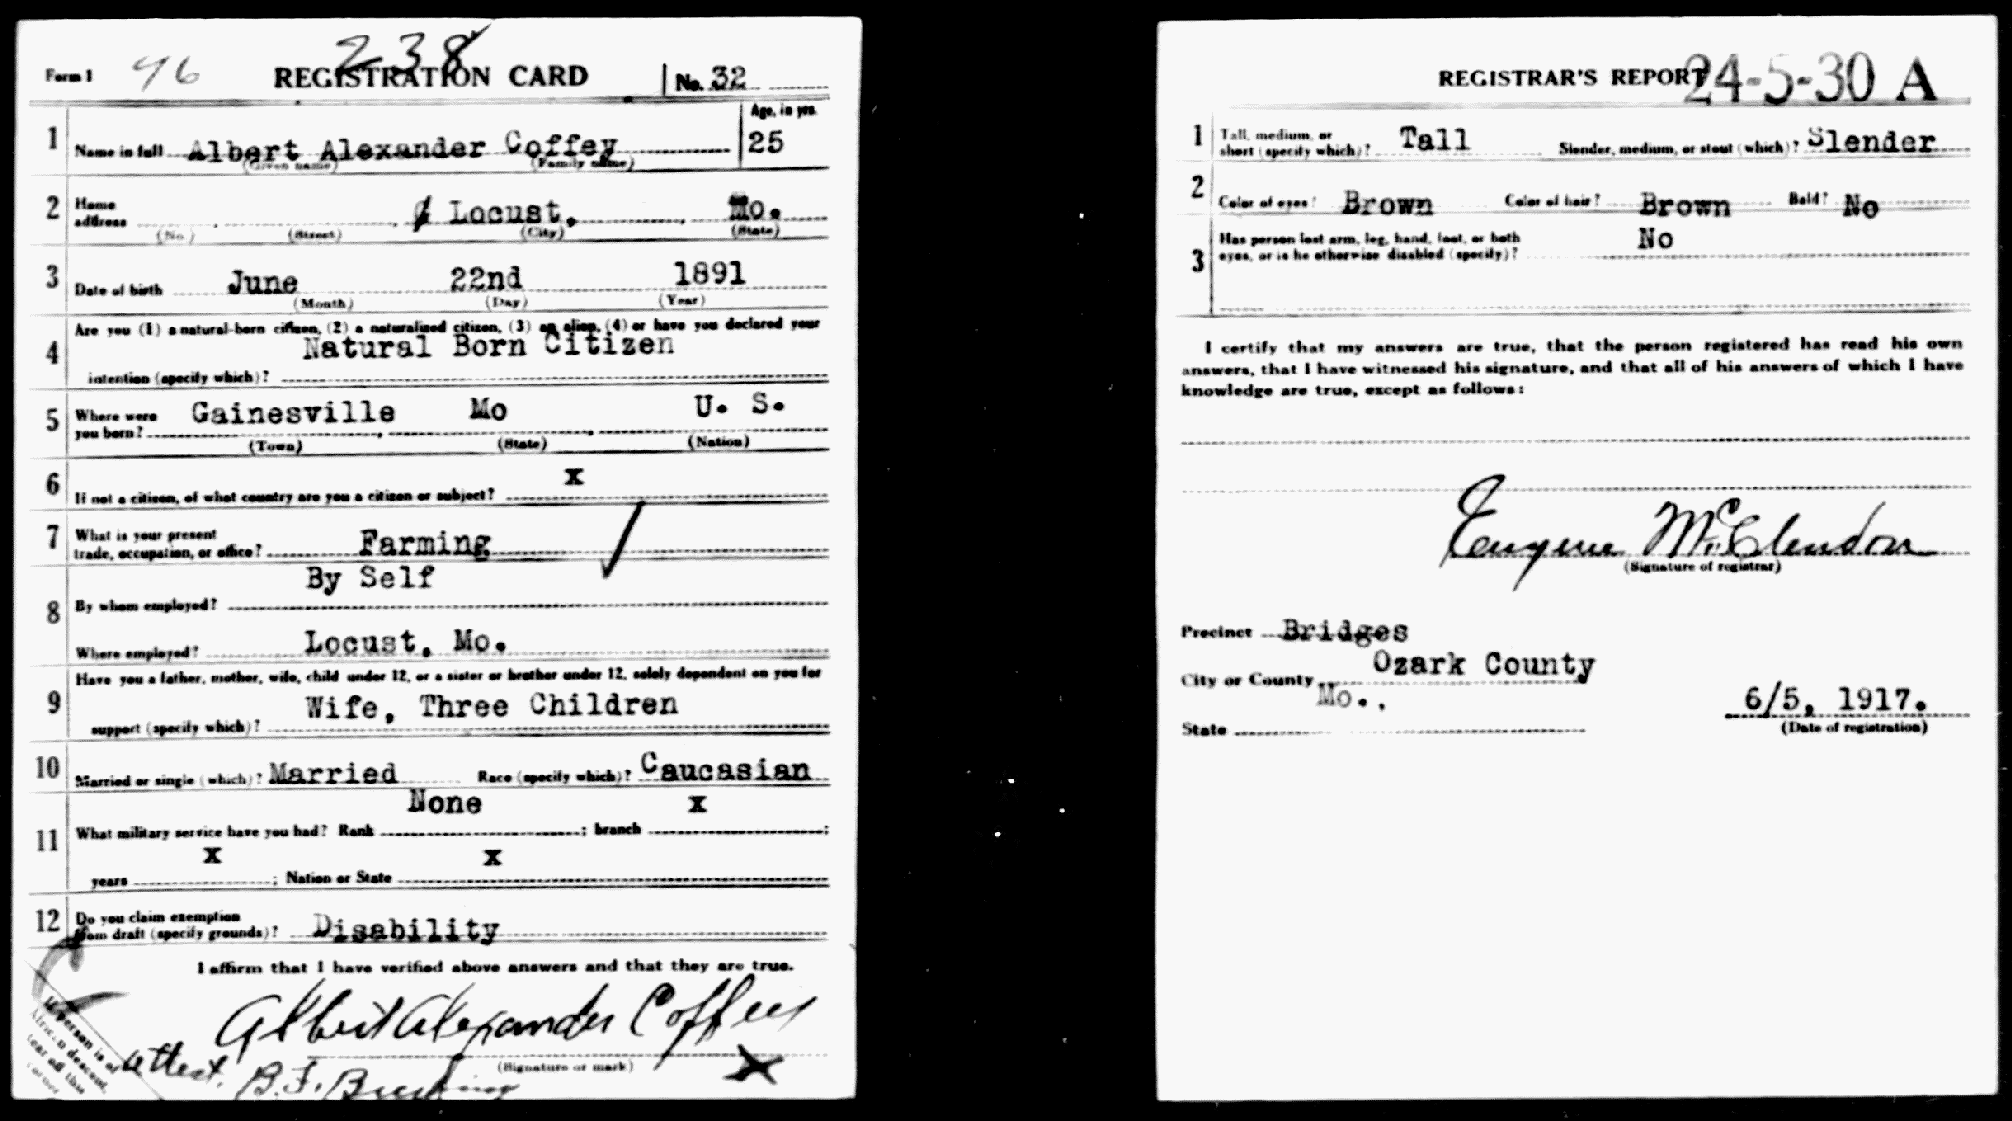 238
Form 1 46 REGISTRATION CARD No. 32
Age, in yrs.
1 Name in full Albert Alexander Coffey 25
(Given name) (Family name)
2 Home address Locust, Mo.
(No.) (Street) (City) (State)
3 Date of birth June 22nd 1891
(Month) (Day) (Year)
4 Are you (1) a natural-born citizen, (2) a naturalized citizen, (3) an alien, (4) or have you declared your
Natural Born Citizen
intention (specify which)?
5 Where were you born? Gainesville Mo U. S.
(Town) (State) (Nation)
x
6 If not a citizen, of what country are you a citizen or subject?
7 What is your present
trade, occupation, or office? Farming
By Self
8 By whom employed?
Where employed? Locust, Mo.
Have you a father, mother, wife, child under 12, or a sister or brother under 12, solely dependent on you for
9 Wife, Three Children
support (specify which)?
10 Married or single (which)? Married Race (specify which)? Caucasian
None x
11 What military service have you had? Rank ; branch ;
x x
years ; Nation or State
12 Do you claim exemption
from draft (specify grounds)? Disability
I affirm that I have verified above answers and that they are true.
Albert Alexander Coffey
(Signature or mark) X
attest. B. F.
If person is of
African descent,
tear off this
corner
REGISTRAR'S REPORT 24-5-30 A
1 Tall, medium, or
short (specify which)? Tall Slender, medium, or stout (which)? Slender
2 Color of eyes? Brown Color of hair? Brown Bald? No
3 Has person lost arm, leg, hand, foot, or both No
eyes, or is he otherwise disabled (specify)?
I certify that my answers are true, that the person registered has read his own
answers, that I have witnessed his signature, and that all of his answers of which I have
knowledge are true, except as follows:
Eugene McClendon
(Signature of registrar)
Precinct Bridges
City or County Ozark County
Mo., 6/5, 1917.
State (Date of registration)